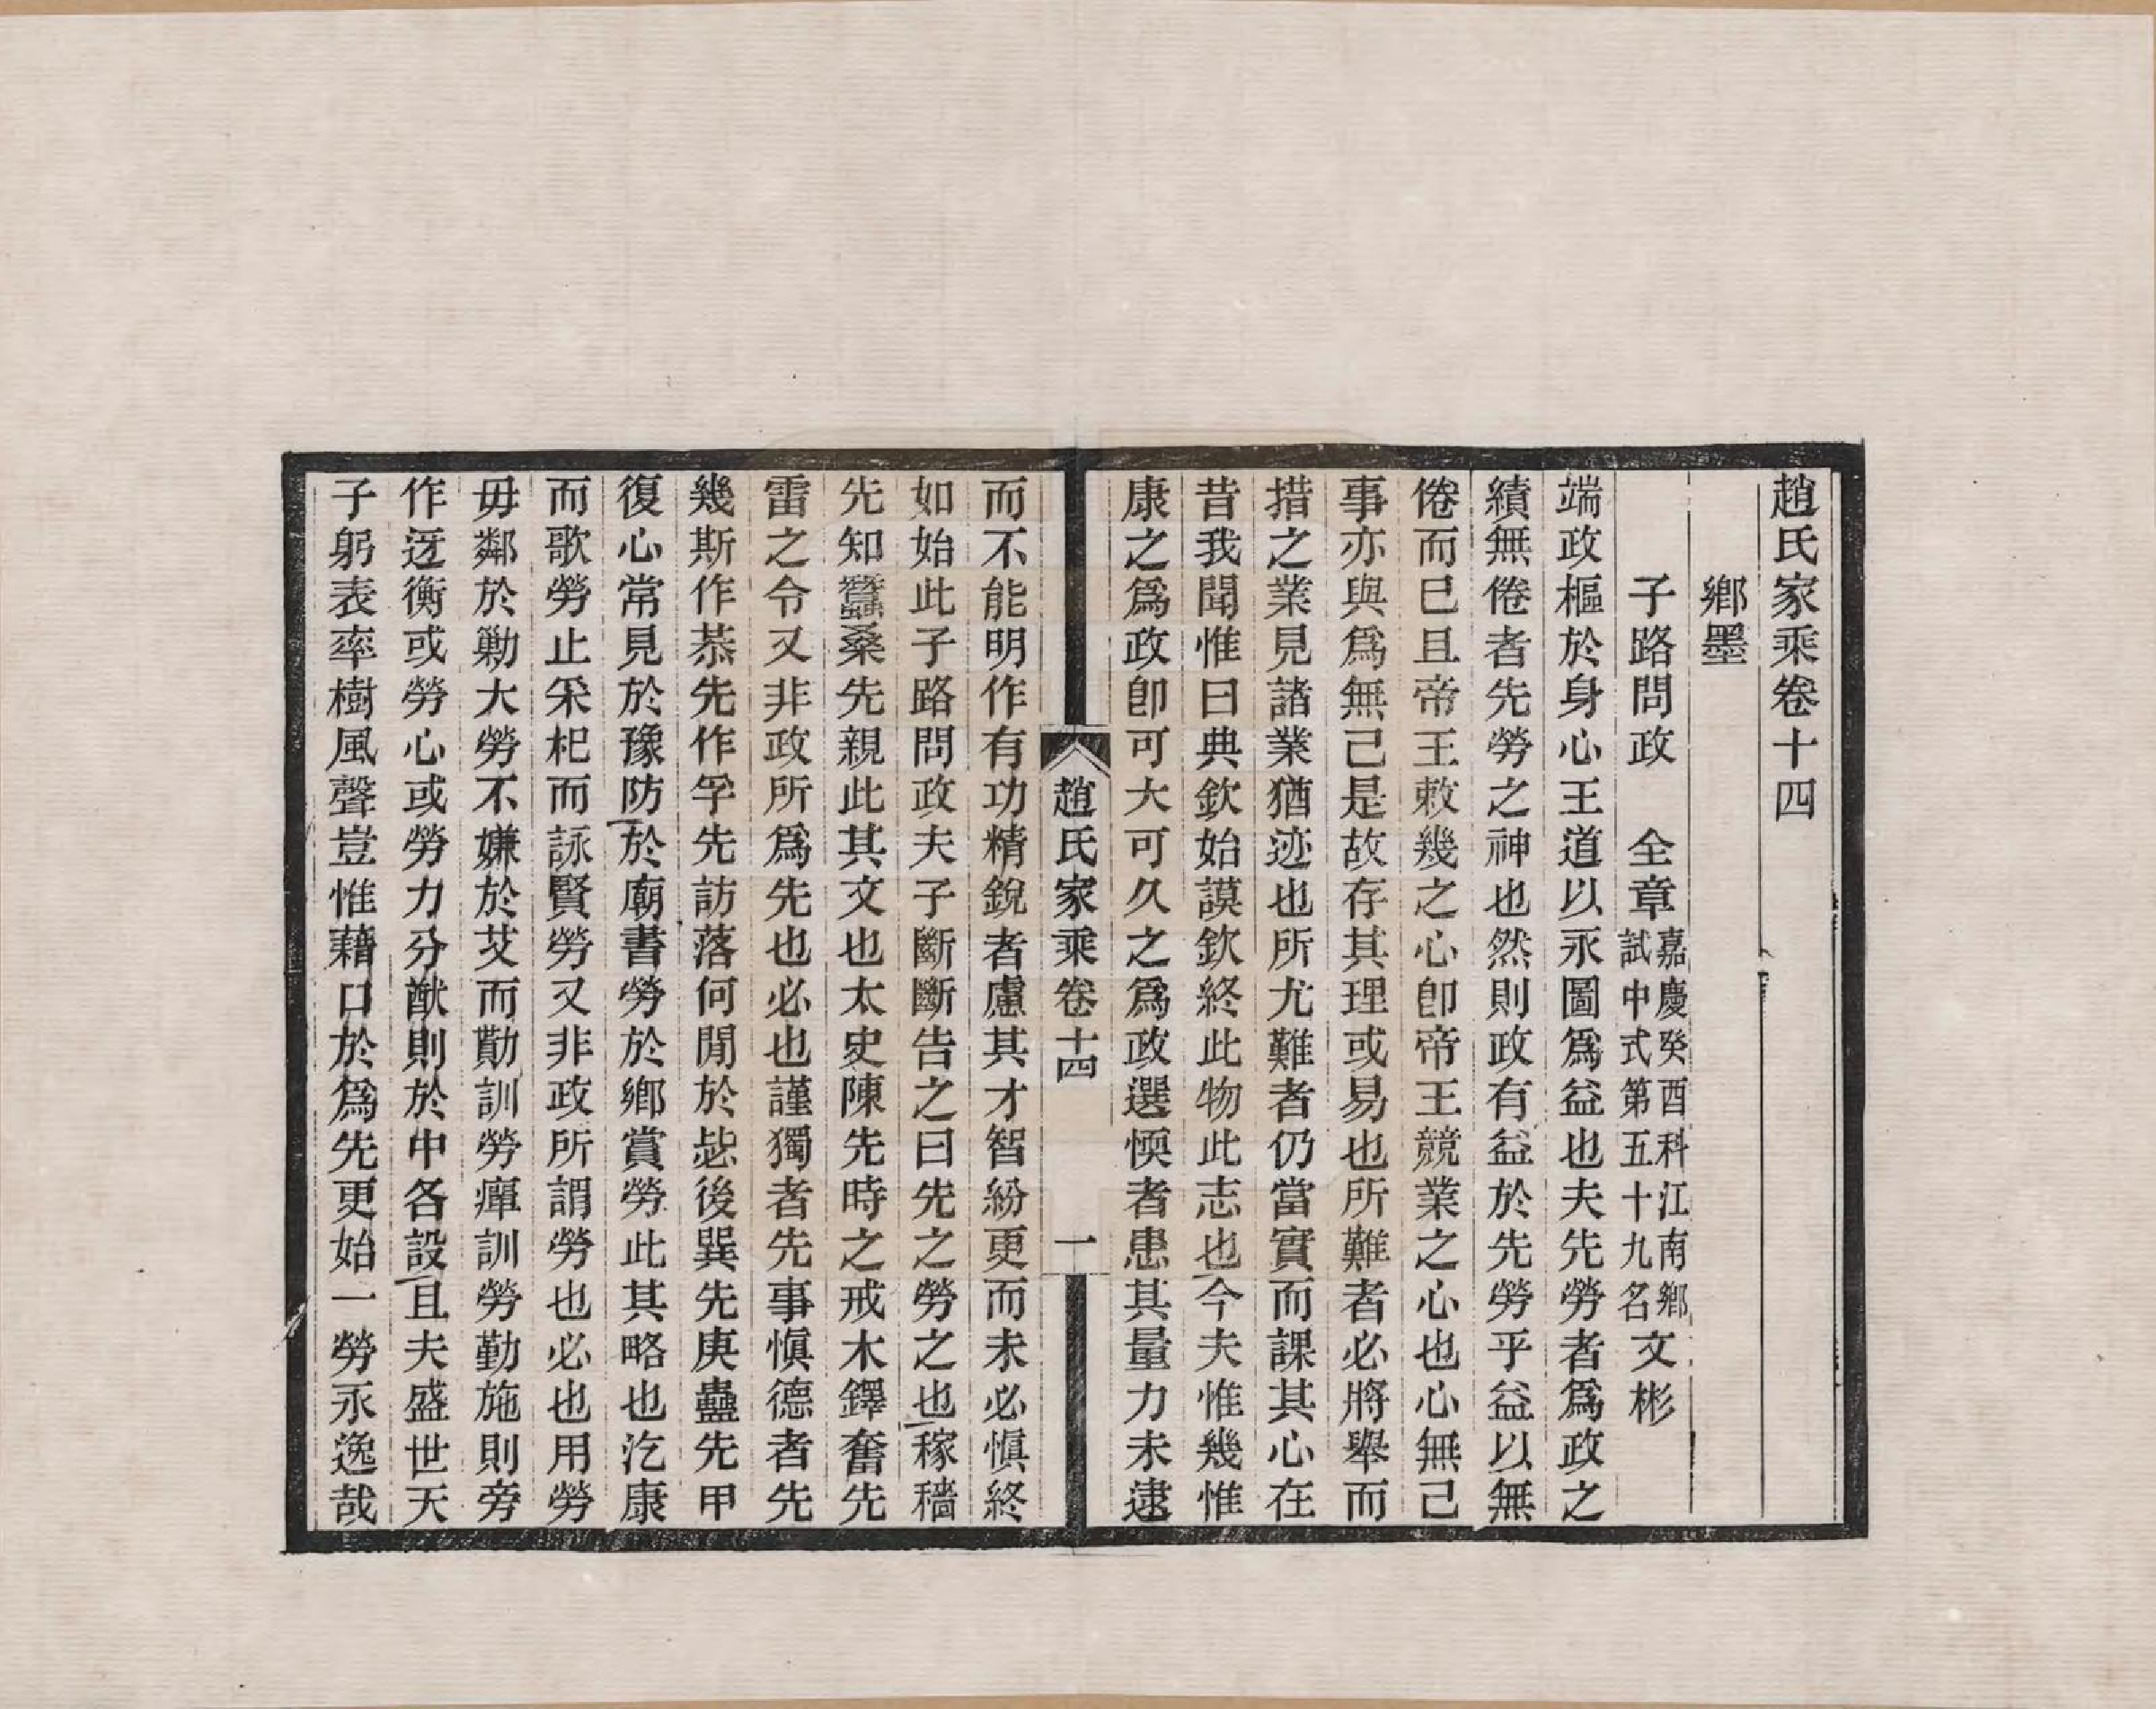 趙氏家乘卷十四
鄉墨
子路問政　全章嘉慶癸酉科江南鄉試中式第五十九名文彬
端政樞於身心王道以永圖爲益也夫先勞者爲政之
績無倦者先勞之神也然則政有益於先勞乎益以無
倦而已且帝王敕幾之心卽帝王競業之心也心無已
事亦與爲無己是故存其理或易也所難者必將舉而
措之業見諸業猶迹也所尤難者仍當實而課其心在
昔我聞惟曰典欽始謨欽終此物此志也今夫惟幾惟
康之爲政卽可大可久之爲政選愞者患其量力未逮
趙氏家乘卷十四　一
而不能明作有功精銳者慮其才智紛更而未必愼終
如始此子路問政夫子斷斷告之曰先之勞之也稼穡
先知蠶桑先親此其文也太史陳先時之戒木鐸奮先
雷之令又非政所爲先也必也謹獨者先事愼德者先
幾斯作恭先作孚先訪落何閒於毖後巽先庚蠱先甲
復心常見於豫防於廟書勞於鄉賞勞此其略也汔康
而歌勞止采杞而詠賢勞又非政所謂勞也必也用勞
毋鄰於勦大勞不嫌於艾而勩訓勞癉訓勞勤施則旁
作迓衡或勞心或勞力分猷則於中各設且夫盛世天
子躬表率樹風聲豈惟藉口於爲先更始一勞永逸哉